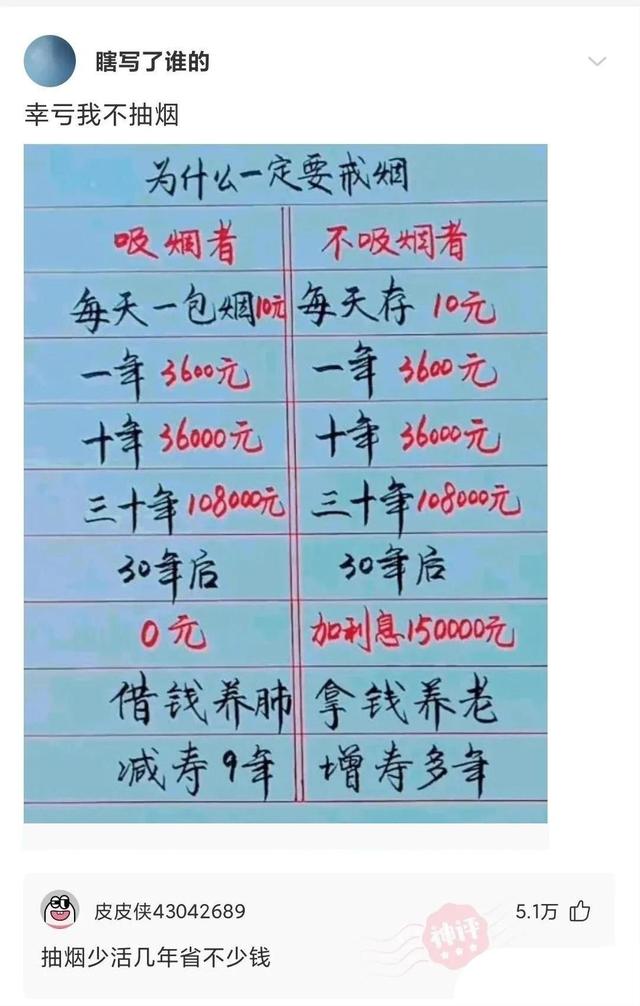 瞎写了谁的
幸亏我不抽烟
为什么一定要戒烟
吸烟者 不吸烟者
每天一包烟10元 每天存 10元
一年 3600元 一年 3600元
十年 36000元 十年 36000元
三十年 108000元 三十年 108000元
30年后 30年后
0元 加利息150000元
借钱养肺 拿钱养老
减寿9年 增寿多年
皮皮侠43042689 5.1万
神评
抽烟少活几年省不少钱